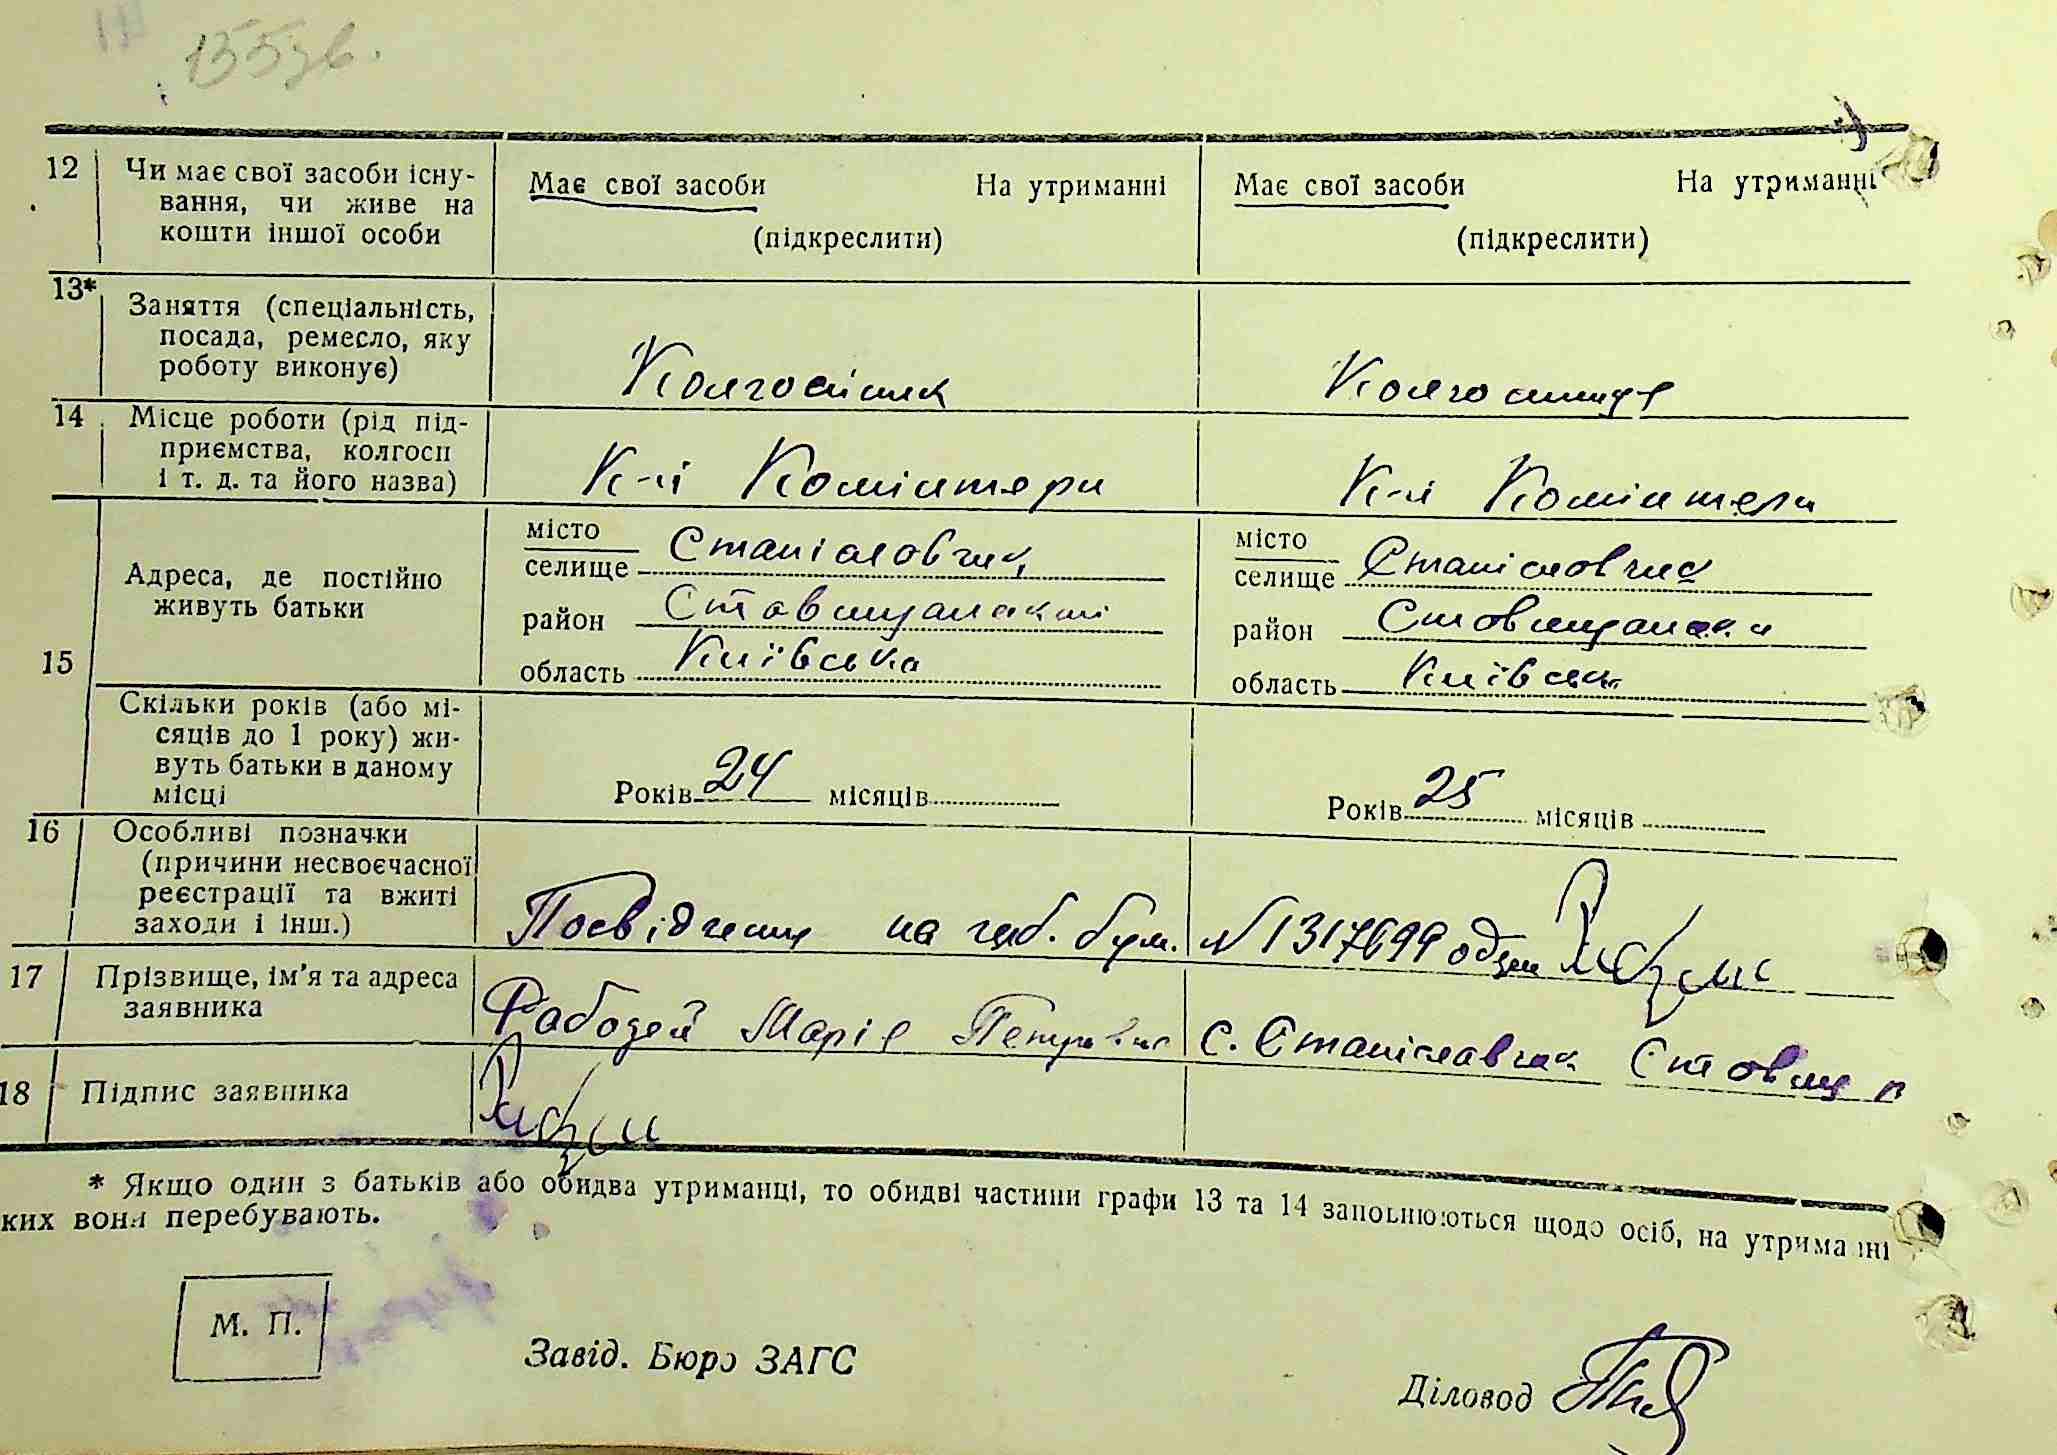 155зв.
12 Чи має свої засоби існу-
вання, чи живе на
кошти іншої особи
Має свої засоби На утриманні
(підкреслити)
Має свої засоби На утриманні
(підкреслити)
13* Заняття (спеціальність,
посада, ремесло, яку
роботу виконує)
Колгоспник
Колгоспниця
14 Місце роботи (рід під-
приємства, колгосп
і т. д. та його назва)
К-п Комінтерн
К-п Комінтерн
15 Адреса, де постійно
живуть батьки
місто
селище Станіславчик
район Ставищанський
область Київська
місто
селище Станіславчик
район Ставищанськи
область Київська
Скільки років (або мі-
сяців до 1 року) жи-
вуть батьки в даному
місці
Років 24 місяців
Років 25 місяців
16 Особливі позначки
(причини несвоєчасної
реєстрації та вжиті
заходи і інш.)
Посвідчення на гцб. бум. №1317699
17 Прізвище, ім'я та адреса
заявника
Марія Петрівна с. Станіславчик Ставищ р
18 Підпис заявника
* Якщо один з батьків або обидва утриманці, то обидві частини графи 13 та 14 заповнюються щодо осіб, на утриманні
ких вони перебувають.
М. П.
Завід. Бюро ЗАГС
Діловод